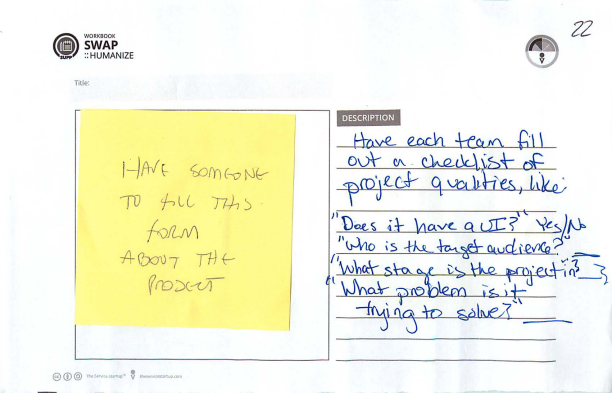 22
WORKBOOK
SWAP
::HUMANIZE
SUPP
Title:
HAVE SOMEONE
TO FILL THIS
FORM
ABOUT THE
PROJECT
DESCRIPTION
Have each team fill
out a checklist of
project qualities, like:
"Does it have a UI?" Yes/No
"Who is the target audience?" ___
"What stage is the project in?" ___
"What problem is it
trying to solve?" ___
The Service Startup™
theservicestartup.com